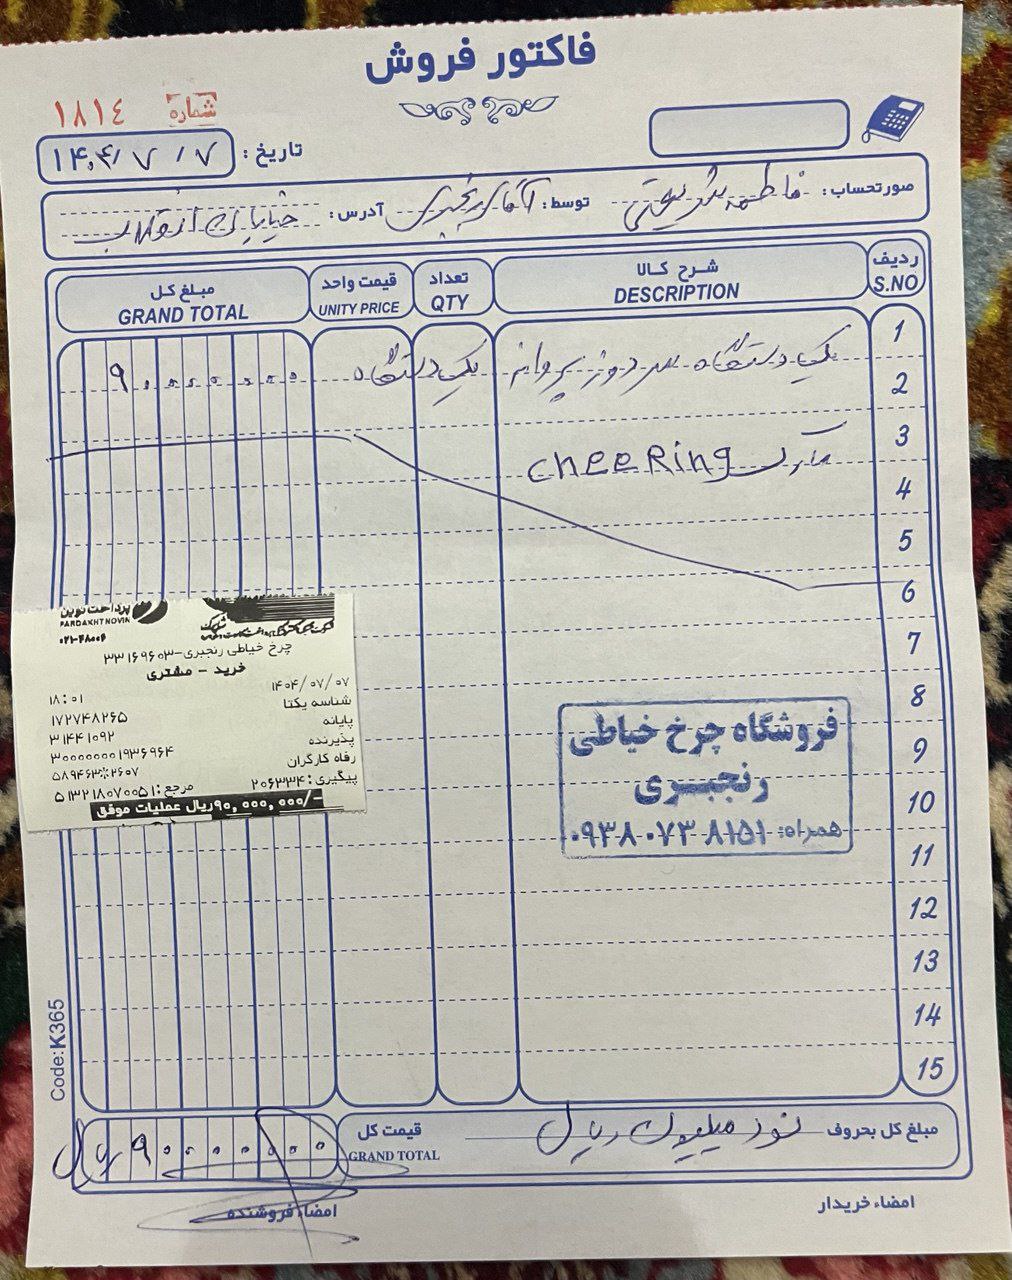 فاکتور فروش
شماره ١٨١٤
تاریخ: ۱۴۰۴/۷/۷
صورتحساب: فاطمه توسط: آقای رنجبری آدرس: خیابان انقلاب
ردیف شرح کالا تعداد قیمت واحد مبلغ کل
S.NO DESCRIPTION QTY UNITY PRICE GRAND TOTAL
1
یک دستگاه سردوز پروانه یک دستگاه ۹۰۰۰۰۰۰۰
2
3
مارک cheeRing
4
5
6
7
8
9
10
11
12
13
14
15
پرداخت نوین
PARDAKHT NOVIN
۰۲۱-۴۸۰۰۶
چرخ خیاطی رنجبری-۳۳۱۶۹۶۰۳
خرید - مشتری
۱۴۰۴/۰۷/۰۷ ۱۸:۰۱
شناسه یکتا ۱۷۲۷۴۸۲۶۵
پایانه ۳۱۴۴۱۰۹۲
پذیرنده ۳۰۰۰۰۰۰۰۱۹۳۶۹۶۴
رفاه کارگران ۵۸۹۴۶۳**۲۶۰۷
پیگیری: ۲۰۶۳۳۴ مرجع: ۵۱۳۲۱۸۰۷۰۰۵۱
۹۰,۰۰۰,۰۰۰/- ریال عملیات موفق
فروشگاه چرخ خیاطی
رنجبری
همراه: ۰۹۳۸۰۷۳۸۱۵۱
Code:K365
مبلغ کل بحروف نود میلیون ریال قیمت کل ۹۰۰۰۰۰۰۰ ریال
GRAND TOTAL
امضاء خریدار امضاء فروشنده